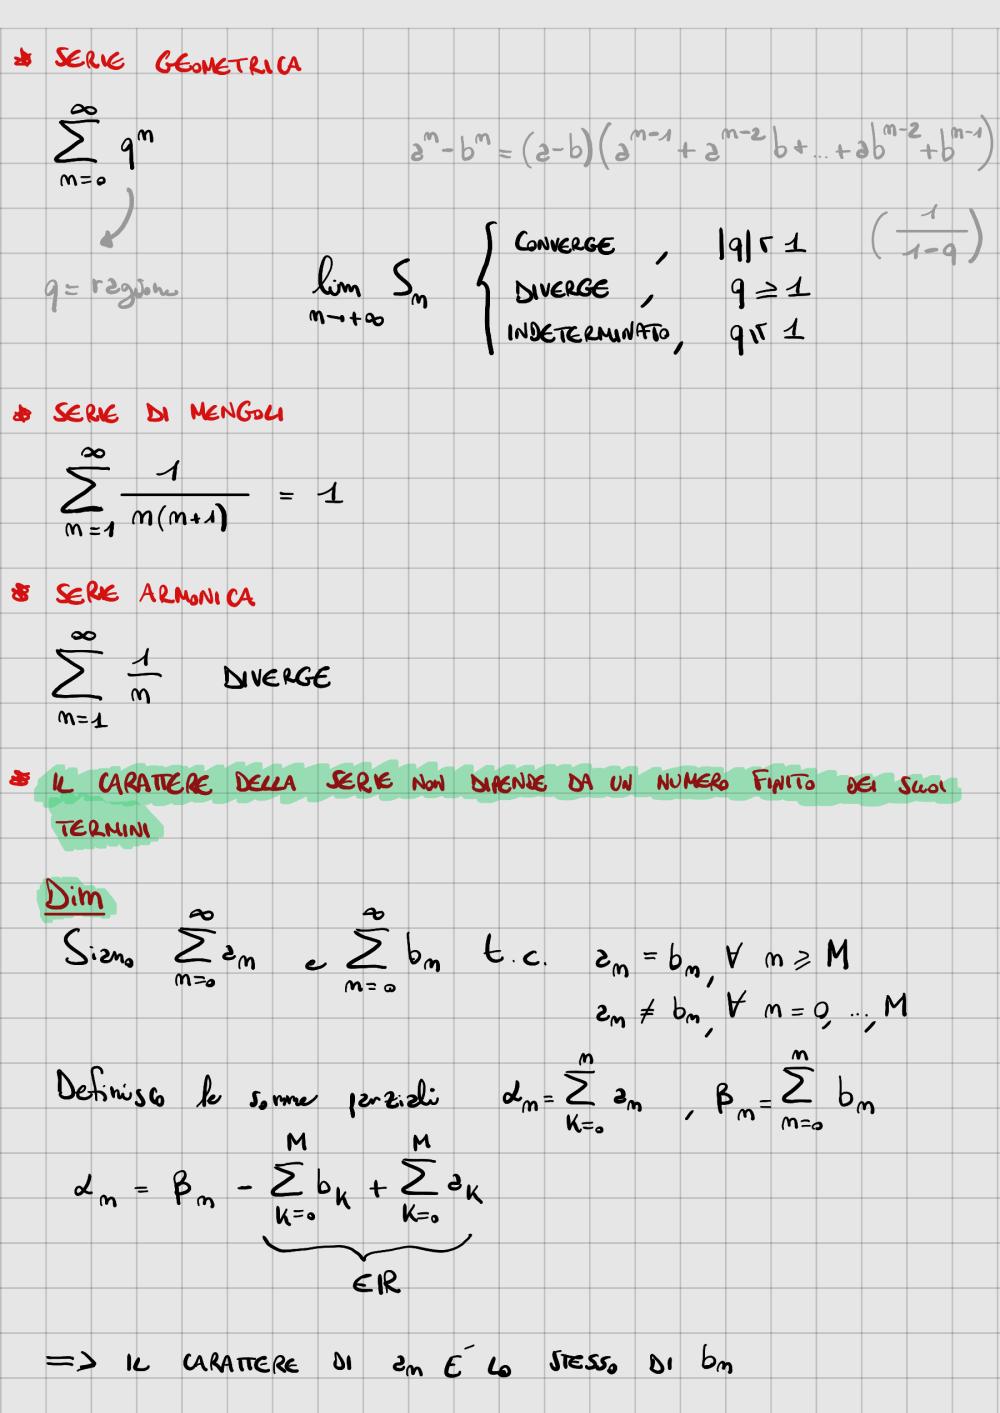 * SERIE GEOMETRICA
∑_{n=0}^{∞} q^n    a^n - b^n = (a-b)(a^{n-1} + a^{n-2}b + ... + ab^{n-2} + b^{n-1})
q = ragione
lim_{n→+∞} S_n { CONVERGE, |q| < 1 (1/(1-q))
DIVERGE, q ≥ 1
INDETERMINATO, q ≤ 1
* SERIE DI MENGOLI
∑_{n=1}^{∞} 1/(n(n+1)) = 1
* SERIE ARMONICA
∑_{n=1}^{∞} 1/n DIVERGE
* IL CARATTERE DELLA SERIE NON DIPENDE DA UN NUMERO FINITO DEI SUOI
TERMINI
Dim
Siano ∑_{n=0}^{∞} a_n e ∑_{n=0}^{∞} b_n t.c. a_n = b_n, ∀ n ≥ M
a_n ≠ b_n, ∀ n = 0, ..., M
Definisco le somme parziali α_n = ∑_{K=0}^{n} a_n , β_n = ∑_{n=0}^{n} b_n
α_n = β_n - ∑_{K=0}^{M} b_K + ∑_{K=0}^{M} a_K
∈ℝ
=> IL CARATTERE DI a_n E' LO STESSO DI b_n